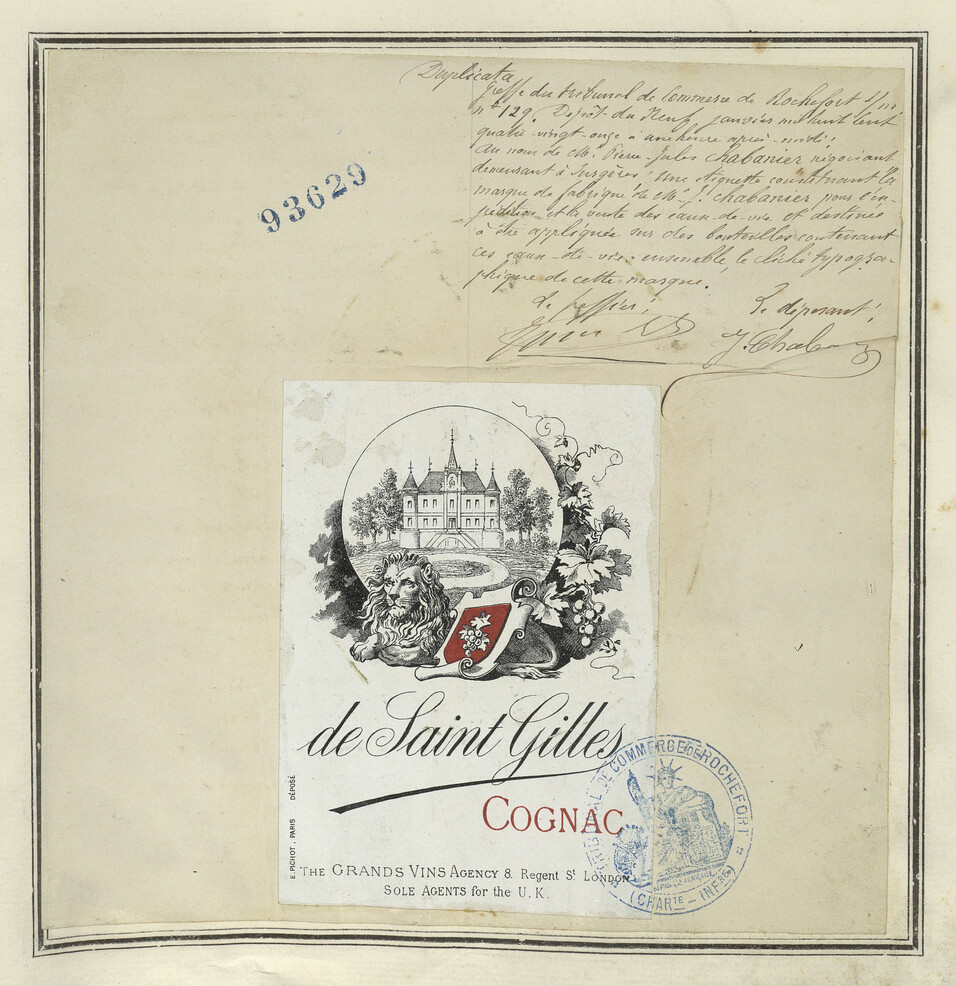 Duplicata
Greffe du tribunal de Commerce de Rochefort s/m
nº 129. Dépôt du Neuf janvier mil huit cent
quatre-vingt-onze à une heure après-midi,
au nom de M. Pierre-Jules Chabanier négociant
demeurant à Surgères. Une étiquette constituant la
marque de fabrique de M. J. Chabanier pour l'ex-
pédition et la vente des eaux-de-vie et destinée
à être appliquée sur des bouteilles contenant
ces eaux-de-vie: ensemble, le cliché typogra-
phique de cette marque.
Le greffier, Le déposant,
J. Chabanier
93629
de Saint Gilles
COGNAC
E. PICHOT, PARIS DÉPOSÉ
THE GRANDS VINS AGENCY 8. Regent St LONDON
SOLE AGENTS for the U.K.
TRIBUNAL DE COMMERCE DE ROCHEFORT
(CHARTE - INFRE)